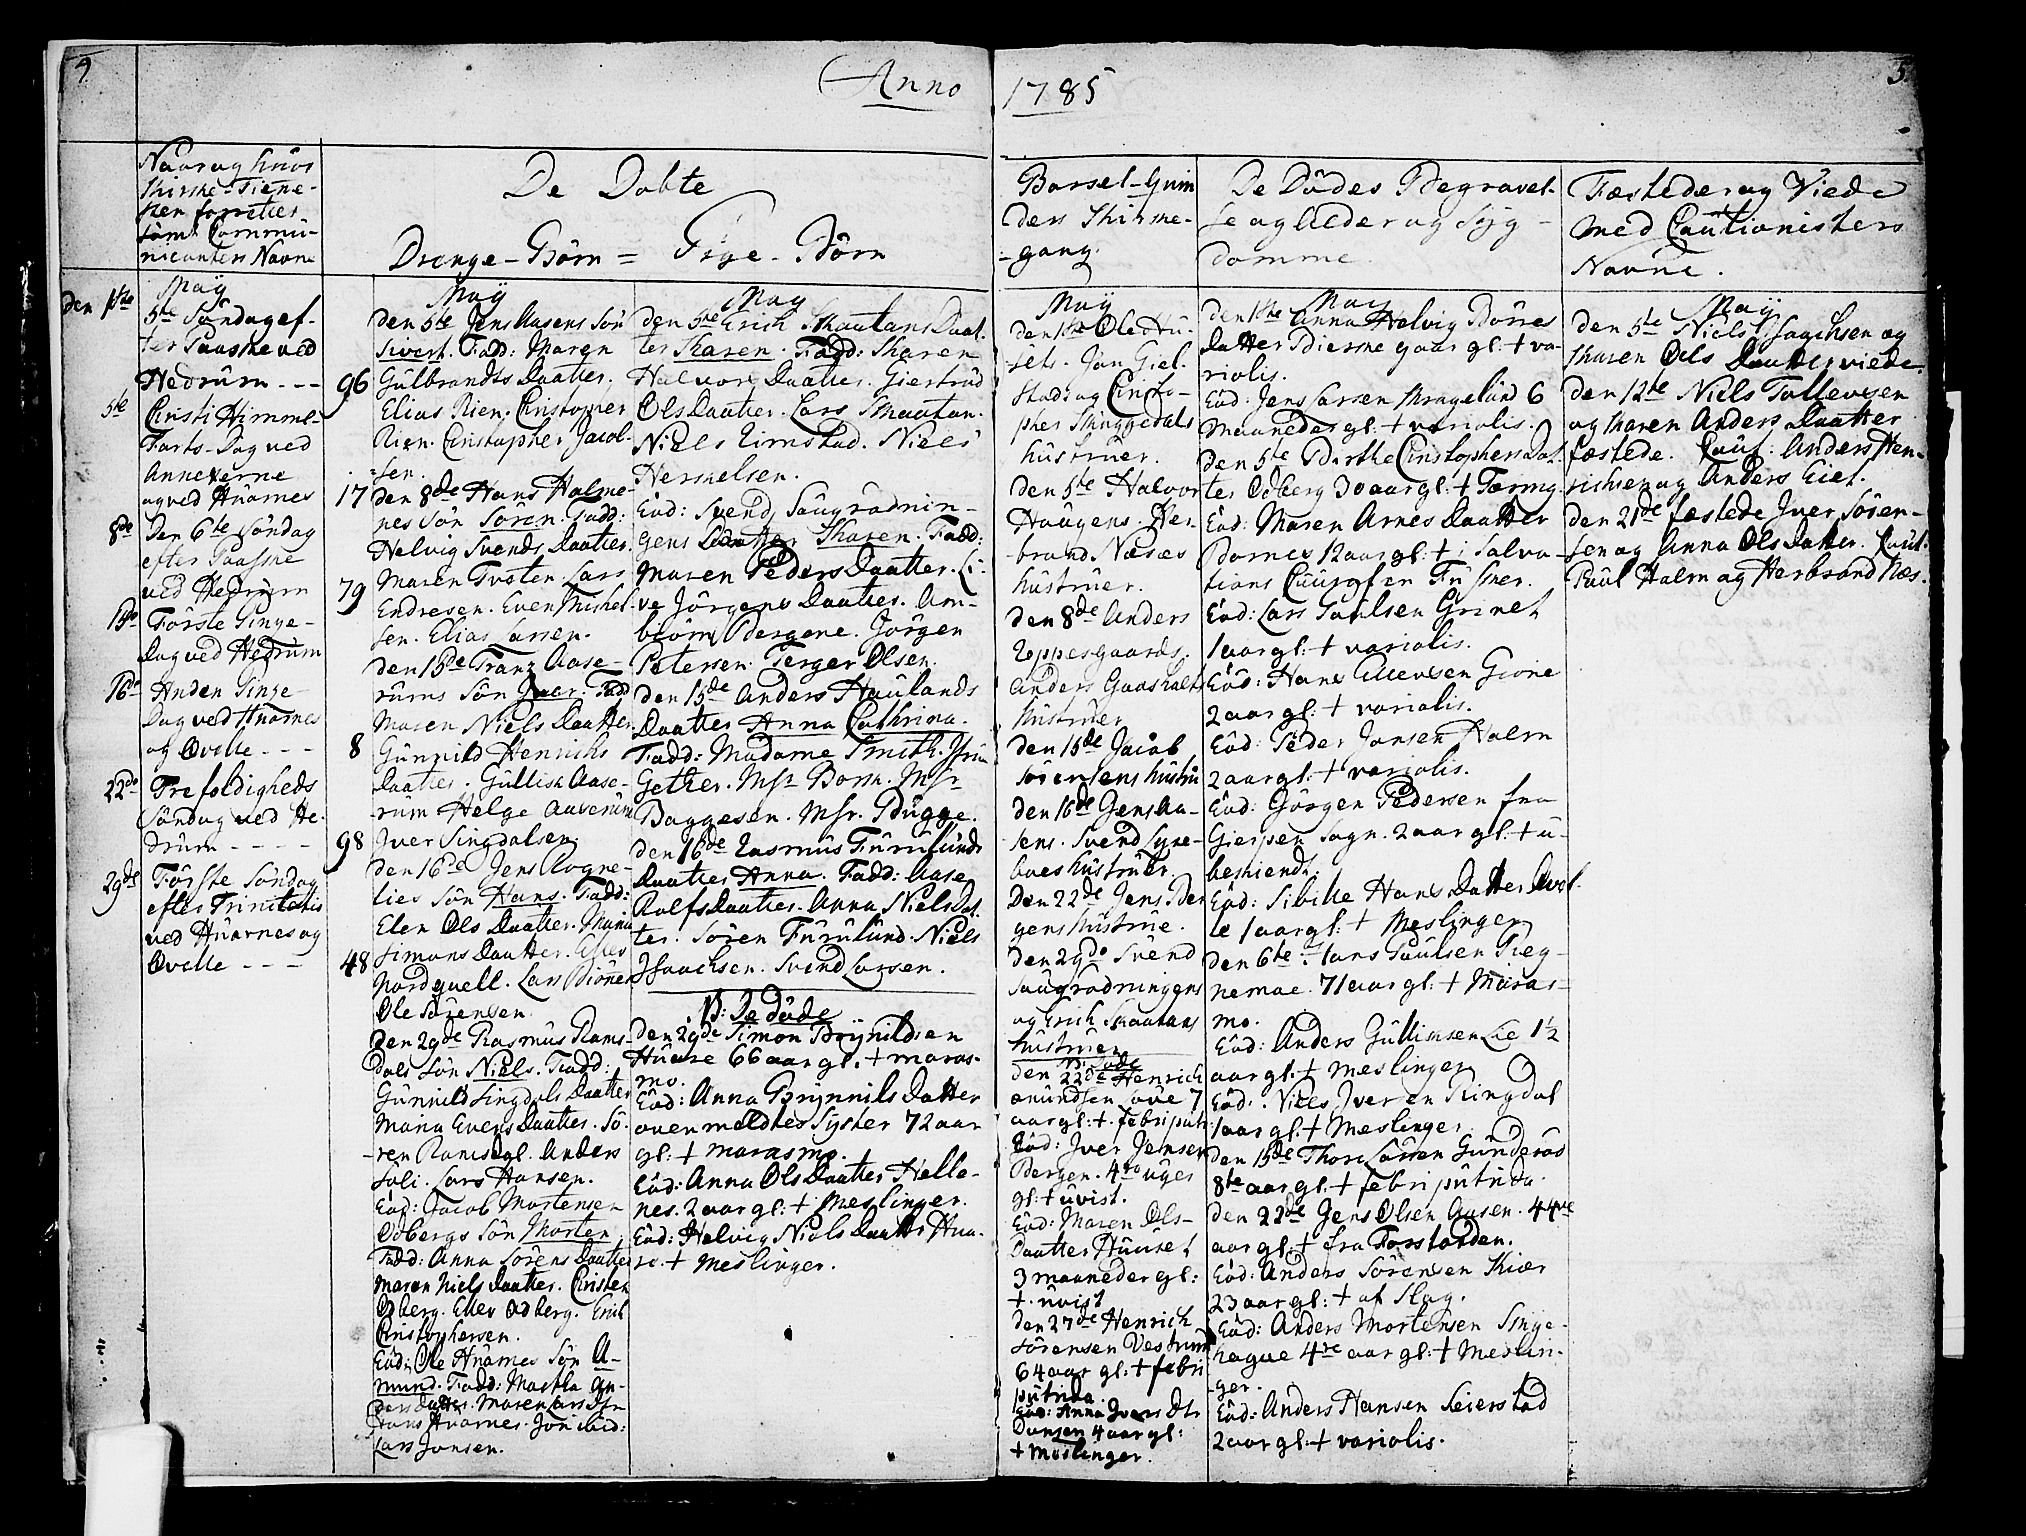 9
Anno
1785
5
Naar og hvor
Kirke-Tiene-
sten forrettes
samt Commu-
nicanters Navne
De Døbte
Drenge-Börn = Pige-Börn
Barsel-Qvin
ders Kirke-
-gang.
De Dödes Begravel-
se og Alder og Syg-
domme.
Fæstede og Viede
med Cautionisters
Navne.
May
den 1ste
5te Söndag ef-
ter Paaske ved
Hedrum - - - 96
5te
Christi Himmel-
Farts-Dag ved
Annexerne
og ved Huarnes 17
8de
Den 6te Söndag
efter Paaske
ved Hedrum 79
15de
Förste Pinge-
Dag ved Hedrum
16de
Anden Pinge-
Dag ved Huarnes
og Qvelle - - - 8
22de
Trefoldigheds
Söndag ved He-
drum - - - - 98
29de
Förste Söndag
efter Trinitatis
ved Huarnes og
Qvelle - - - 48
May
den 5te Jens Aasens Sön
Sivert. Fadd: Maren
Gulbrands Daatter.
Elias Rien. Christopher
Rien. Christopher Jacob-
sen.
den 8de Hans Holme-
nes Sön Sören. Fadd:
Helvig Svends Daatter.
Maren Lars
Endresen. Even Michel-
sen. Elias Larsen.
den 15de Franz Aase-
rums Sön Iver. Fadd
Maren Niels Daatter.
Gunnild Henrichs
Daatter. Gullich Aase-
rum Helge Aaserum
Iver Singdalsen.
den 16de Jens Rogne-
lies Sön Hans. Fadd:
Elen Ols Daatter. Maria
Simons Daatter.
Nordqvell. Lars
Ole Sörensen.
den 29de Rasmus Rams-
dals Sön Niels. Fadd:
Gunnild Singdals Daatter
Maria Evens Daatter. Sö-
ren Ramsdal. Anders
Soli. Lars Hansen.
Eod: Jacob Mortensen
Odbergs Sön Morten.
Fadd: Anna Sörens Daatter
Maren Niels Daatter. Christen
Odberg. Ellev Odberg. Erich
Christophersen.
Eod: Ole Huarnes Sön A-
mund. Fadd: Martha An-
ders Datter. Maren Lars Dtr
Hans Huarnes. Jon
Lars Jonsen.
May
den 5te Erich Skaatans Daat-
ter Karen. Fadd: Karen
Halvors Daatter. Giertrud
Ols Daatter. Lars Skaatan.
Niels Rimstad. Niels
Herkelsen.
Eod: Svend Saugradnin-
gens Daatter Karen. Fadd:
Maren Peders Daatter. Li-
ve Jörgens Daatter. Am-
biörn Bergene. Jörgen
Petersen. Terger Olsen.
den 15de Anders Haulands
Daatter Anna Cathrina.
Fadd: Madame Smith. Jfru
Gether. Msr Born. Msr
Baggesen. Msr. Brügge.
den 16de Rasmus Furulunds
Daatter Anna. Fadd: Aase
Rolfs Daatter. Anna Niels Dat-
ter. Sören Furulund. Niels
Isaachsen. Svend Larsen.
N: De döde
den 29de Simon Brÿnildsen
Huare 66 aar gl: + maras-
mo.
Eod: Anna Brynnils Datter
oven meldtes Syster 72 aar
gl: + marasmo.
Eod: Anna Ols Daatter Helle-
nes. 2 aar gl: + Meslinger.
Eod: Helvig Niels Daatter Hua-
re. + Meslinger.
May
den 1ste Ole Hu-
sets. Jon Giel-
stad og Christo-
pher Skinggedals
hustruer.
den 5te Halvor
Haugens. Her-
brand Næses
hustruer.
den 8de Anders
Eppesgaards.
Anders Gaasholts
hustruer
den 15de Jacob
Sörensens hustru
den 16de Jens Aa-
sens. Svend Lyse-
boes hustruer.
den 22de Jens Ber
gens hustrue.
den 29de Svend
Saugradningens
og Erich Skaatans
hustruer
N: Döde
den 22de Henrich
Amundsen Love 7
aar gl: + febri putr:
Eod: Iver Jensen
Bergen. 4re uger
gl: + uvist.
Eod: Maren Ols-
Daatter Huuset
3 maaneder gl:
+. uvist
den 27de Henrich
Sörensen Vestrum
64 aar gl: + febri
putrida.
Eod: Anna Ivers Dtr
4 aar gl:
+ Meslinger.
May
den 1ste Anna Helvig Börres
Datter Bierke 9 aar gl: + va-
riolis.
Eod: Jens Larsen Kragelund 6
Maaneder gl: + variolis.
den 5te Birthe Christophers Dat-
ter Odberg 30 aar gl: + Tæring.
Eod: Maren Arnes Daatter
Bornes 12 aar gl: + i Saliva-
tions Cuur
Eod: Lars Paulsen Grinet
1 aar gl: + variolis.
Eod: Hans Ellevsen Gione
2 aar gl: + variolis.
Eod: Peder Jansen Holm
2 aar gl: + variolis.
Eod: Jörgen Pedersen fra
Gierpen Sogn. 2 aar gl: + u-
bekiendt.
Eod: Sibille Hans Datter Qvel-
le 1 aar gl: + Meslinger
den 6te Hans Paulsen Preg-
nemoe. 71 aar gl: + Maras-
mo.
Eod: Anders Gullichsen Lie 1½
aar gl: + Meslinger
Eod: Niels Iversen Ringdal
1 aar gl: + Meslinger.
den 15de Thore Larsen Gunderöd
8te aar gl: + febri putrida.
den 22de Jens Olsen Aasen. 44re
aar gl: + fra Forstanden.
Eod: Anders Sörensen Kiær
23 aar gl: + af Slag.
Eod: Anders Mortensen Skye-
hague 4re aar gl: + Meslin-
ger.
Eod: Anders Hansen Seierstad
2 aar gl: + variolis.
May
den 5te Niels Isaachsen og
Karen Ols Daatter viede.
den 12te Niels Tollevsen
og Karen Anders Daatter
fæstede. Caut: Anders Hen-
richsen og Anders Eiet.
den 21de fæstede Iver Sören-
sen og Anna Ols Datter. Caut.
Paul Holm og Herbrand Næs.